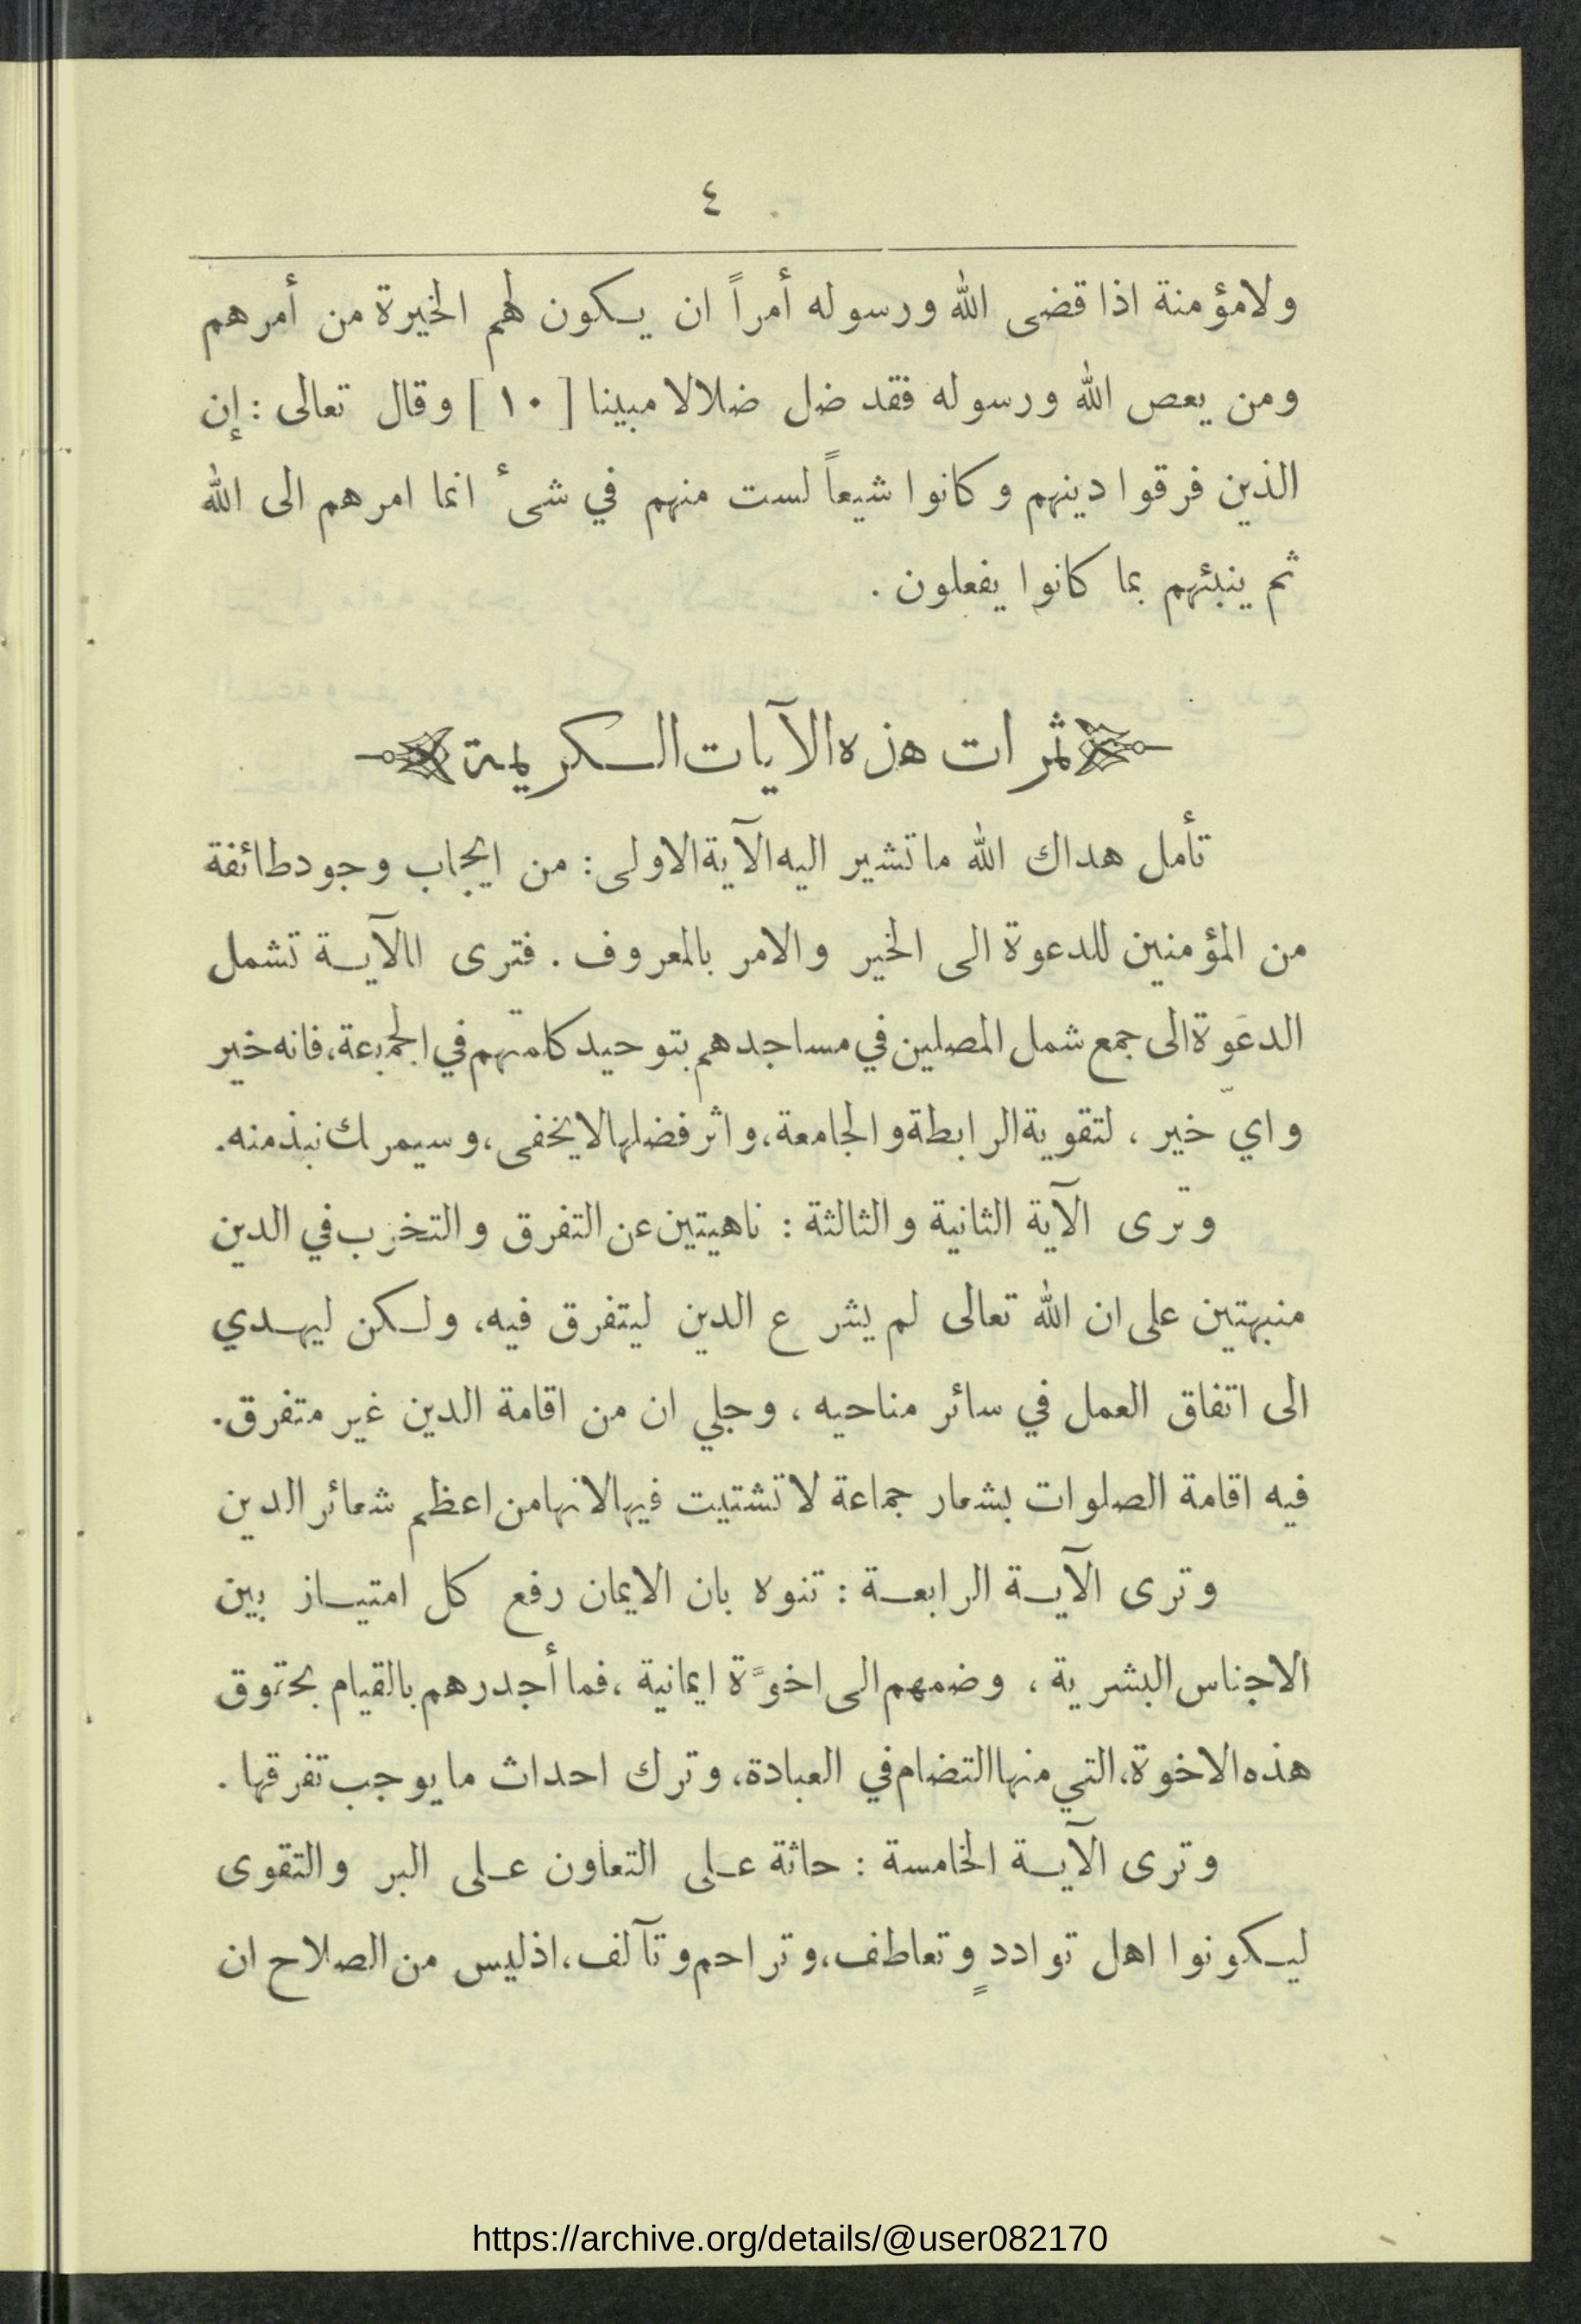 ٤
ولا مؤمنة اذا قضى الله ورسوله أمراً ان يكون لهم الخيرة من أمرهم
ومن يعص الله ورسوله فقد ضل ضلالا مبينا [ ١٠ ] وقال تعالى : إن
الذين فرقوا دينهم وكانوا شيعاً لست منهم في شىء انما امرهم الى الله
ثم ينبئهم بما كانوا يفعلون .
ثمرات هذه الآيات الكريمة
تأمل هداك الله ما تشير اليه الآية الاولى : من ايجاب وجود طائفة
من المؤمنين للدعوة الى الخير والامر بالمعروف . فترى االآية تشمل
الدعوة الى جمع شمل المصلين في مساجدهم بتوحيد كلمتهم في الجمعة، فانه خير
وايّ خير ، لتقوية الرابطة والجامعة، واثر فضلها لا يخفى، وسيمر لك نبذ منه.
وترى الآية الثانية والثالثة : ناهيتين عن التفرق والتخزب في الدين
منبهتين على ان الله تعالى لم يشرع الدين ليتفرق فيه، ولكن ليهدي
الى اتفاق العمل في سائر مناحيه ، وجلي ان من اقامة الدين غير متفرق.
فيه اقامة الصلوات بشعار جماعة لا تشتيت فيها لانها من اعظم شعائر الدين
وترى الآية الرابعة : تنوه بان الايمان رفع كل امتياز بين
الاجناس البشرية ، وضمهم الى اخوَّة ايمانية ، فما أجدرهم بالقيام بحقوق
هذه الاخوة، التي منها التضام في العبادة، وترك احداث ما يوجب تفرقها .
وترى الآية الخامسة : حاثة على التعاون على البر والتقوى
ليكونوا اهل تواددٍ وتعاطف، وتراحم وتآلف، اذ ليس من الصلاح ان
https://archive.org/details/@user082170